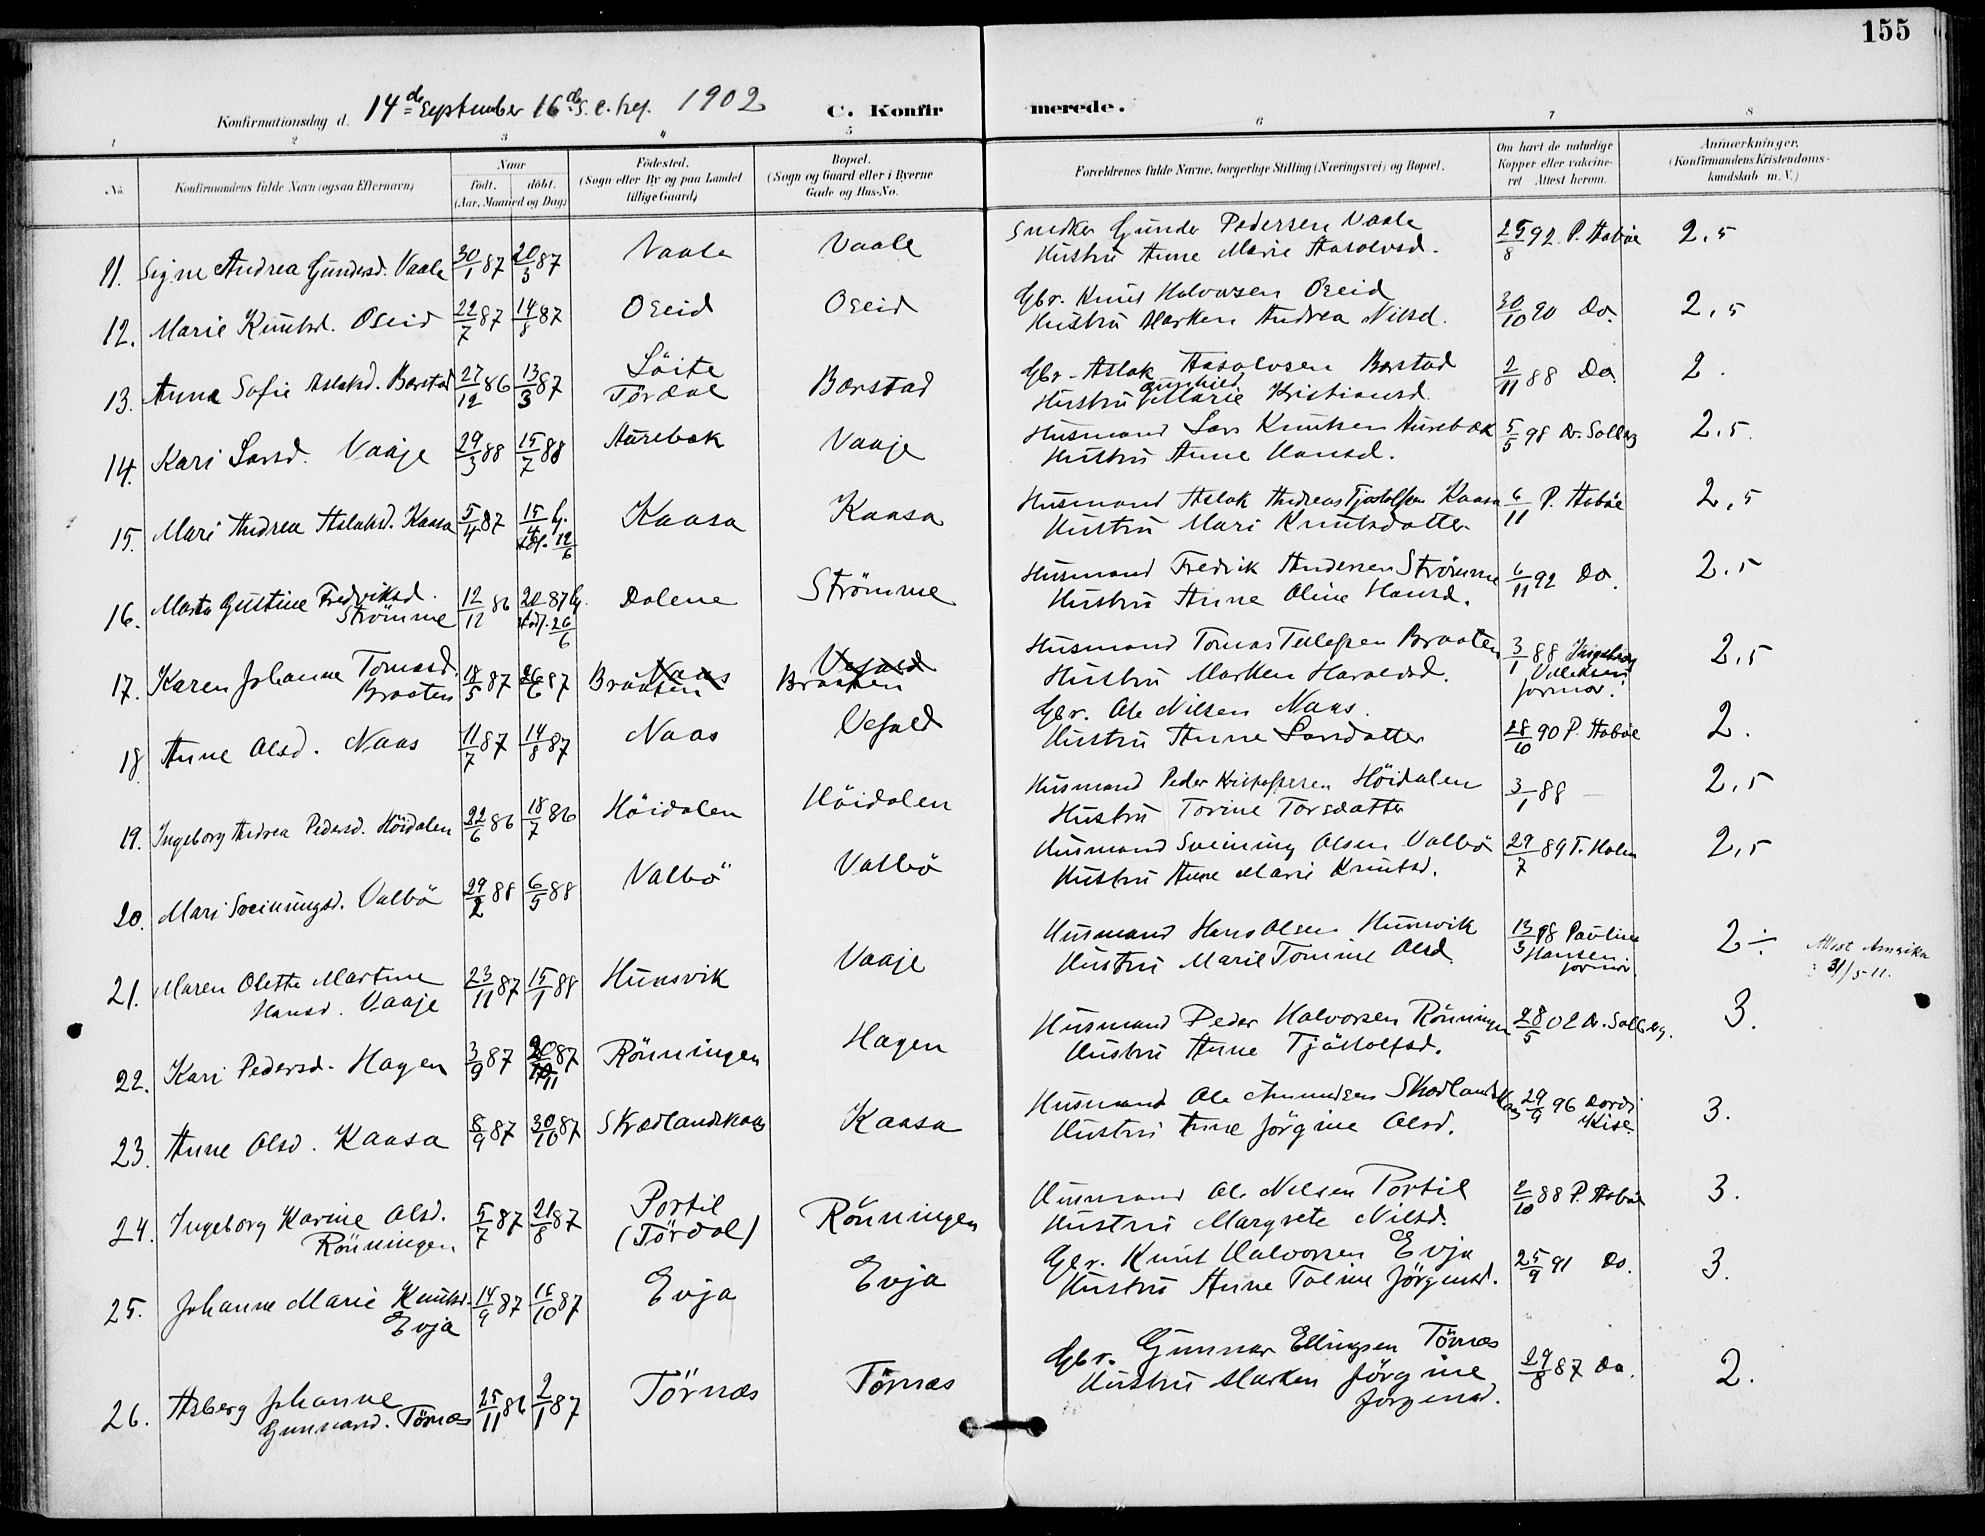 155
Konfirmationsdag d. 14de September 16de S. e. tref. 1902 C. Konfirmerede.
1 2 3 4 5 6 7 8
No. Konfirmandens fulde Navn (ogsaa Efternavn) Naar født. døbt. (Aar, Maaned og Dag) Fødested. (Sogn eller By og paa Landet tillige Gaard) Bopæl. (Sogn og Gaard eller i Byerne Gade og Hus-No. Forældrenes fulde Navne, borgerlige Stilling (Næringsvei) og Bopæl. Om havt de naturlige Kopper eller vaccineret. Attest herom. Anmærkninger. (Konfirmandens Kristendomskundskab m. V.)
11. Signe Andrea Gundersd. Vaale 30/1 87 20/3 87 Vaale Vaale Snedker Gunder Pedersen Vaale 25/8 92 P. Asbøe 2,5
Hustru Anne Marie Aasolvsd.
12. Marie Knutsd. Oseid 22/7 87 14/8 87 Oseid Oseid Gbr. Knut Halvorsen Oseid 30/10 90 Do. 2,5
Hustru Marken Andrea Nilsd.
13. Anna Sofie Aslaksd. Barstad 27/12 86 13/3 87 Löite Tördal Barstad Gbr. Aslak Aasolvsen Barstad 2/11 88 Do. 2.
Hustru Gunhild Marie Kristiansd.
14. Kari Larsd. Vaaje 29/3 88 15/7 88 Aurebæk Vaaje Husmand Lars Knutsen Aurebæk 5/5 98 Dr. Solberg 2,5.
Hustru Anne Hansd.
15. Mari Andrea Aslaksd. Kaasa 5/4 87 15/4 hj. 12/6 Kaasa Kaasa Husmand Aslak Andreas Tjostolfsen Kaasa 6/11 P. Asbøe 2,5
Hustru Mari Knutsdatter
16. Marta Gustine Fredriksd. Strömme 12/12 86 87 hj. 26/6 Dalene Strömme Husmand Fredrik Andersen Strömme 6/11 92 Do. 2.5
Hustru Anne Oline Hansd.
17. Karen Johanne Tomasd. Braaten 18/5 87 26/6 87 Naas Braaten Vefald Braaten Husmand Tomas Tellefsen Braaten 3/1 88 Ingeborg formor. 2,5
Hustru Marken Haraldsd.
18 Anne Olsd. Naas 11/7 87 14/8 87 Naas Vefald Gbr. Ole Nilsen Naas. 28/10 90 P. Asbøe 2.
Hustru Anne Larsdatter
19. Ingeborg Andrea Pedersd. Höidalen 22/6 86 18/7 86 Höidalen Höidalen Husmand Peder Kristofersen Höidalen 3/1 88 — 2,5
Hustru Torine Torsdatter
20. Mari Sveinungsd. Valbö 29/2 88 6/5 88 Valbö Valbö Husmand Sveinung Olsen Valbö 29/7 89 T. Holm 2,5
Hustru Anne Marie Knutsd.
21. Maren Olette Martine Hansd. Vaaje 23/11 87 15/1 88 Hunsvik Vaaje Husmand Hans Olsen Hunsvik 13/3 98 Pauline Hansen jormor 2 ÷ Attest Amerika 31/5-11.
Hustru Marie Tomine Olsd.
22. Kari Pedersd. Hagen 3/9 87 20/11 87 Rönningen Hagen Husmand Peder Halvorsen Rönningen 28/5 02 Dr. Solberg. 3.
Hustru Anne Tjöstolfsd.
23. Anne Olsd. Kaasa 8/9 87 30/10 87 Skrædlandskaas Kaasa Husmand Ole Amundsen Skrædlandskaas 29/9 96 Dordi Kise. 3.
Hustru Anne Jörgine Olsd.
24. Ingeborg Karine Olsd. Rönningen 5/7 87 21/8 87 Portil (Tördal) Rönningen Husmand Ole Nilsen Portil 2/10 88 P. Asbøe 3.
Hustru Margrete Nilsd.
25. Johanne Marie Knutsd. Evja 14/9 87 16/10 87 Evja Evja Gbr. Knut Halvorsen Evja 25/9 91 Do. 3.
Hustru Anne Toline Jörgensd.
26. Asberg Johanne Gunnarsd. Törnæs 25/11 86 2/1 87 Törnæs Törnæs Gbr. Gunnar Ellingsen Törnæs 29/8 87 Do. 2.
Hustru Marken Jörgine Jörgensd.